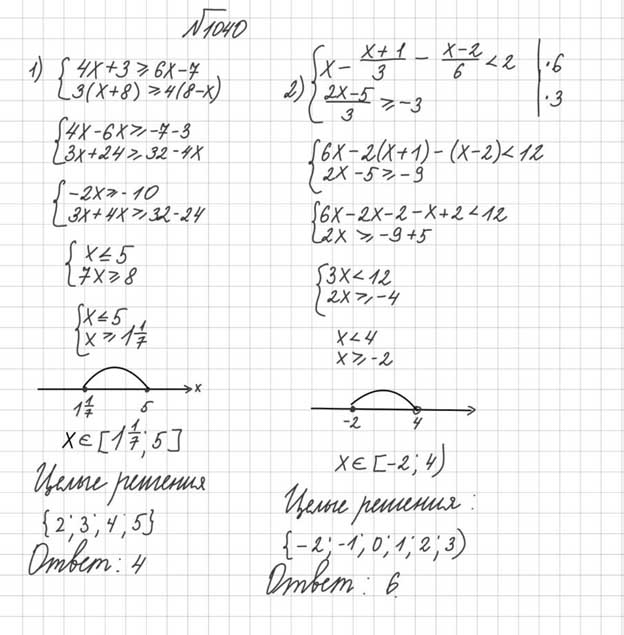 №1040
1) { 4x+3 ≥ 6x-7
3(x+8) ≥ 4(8-x)
{ 4x-6x ≥ -7-3
3x+24 ≥ 32-4x
{ -2x ≥ -10
3x+4x ≥ 32-24
{ x ≤ 5
7x ≥ 8
{ x ≤ 5
x ≥ 1 1/7
x
1 1/7 5
x ∈ [1 1/7; 5]
Целые решения
{2; 3; 4; 5}
Ответ: 4
2) { x - (x+1)/3 - (x-2)/6 < 2 | ·6
(2x-5)/3 ≥ -3 | ·3
{ 6x-2(x+1)-(x-2) < 12
2x-5 ≥ -9
{ 6x-2x-2-x+2 < 12
2x ≥ -9+5
{ 3x < 12
2x ≥ -4
x < 4
x ≥ -2
-2 4
x ∈ [-2; 4)
Целые решения:
{-2; -1; 0; 1; 2; 3)
Ответ: 6